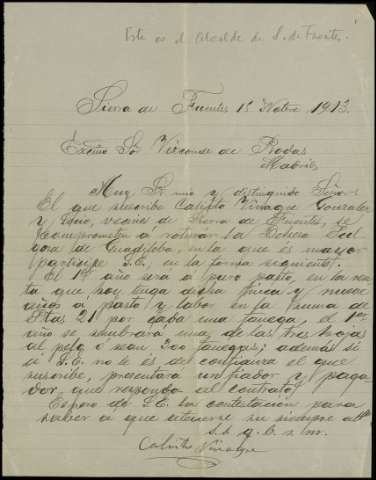 Este es el Alcalde de S. de Fuentes.
Sierra de Fuentes 15 1913.
Excmo Sor Vizconde de Rodas
Madrid
Muy Sr mio y distinguido Señor:
El que suscribe Calixto Vinagre Gonzalez
y vecino de Sierra de Fuentes, se
compromete a roturar la Dehesa
de en la que es mayor
participe S.E, en la forma siguiente:
El 1er año será a puro pasto, en la ren-
ta que hoy tenga dicha finca y nueve
años a pasto y labor en la suma de
Ptas 21 por cada una fanega, el 1er
año se sembrará una de las tres hojas
al pelo ó sean 200 fanegas; además si
a S.E. no le és de confianza el que
suscribe, presentará un fiador y paga-
dor, que responda al contrato,
Espero de S.E. la contestación para
saber a que atenerse su siempre
s.s. q. b. s. m.
Calixto Vinagre